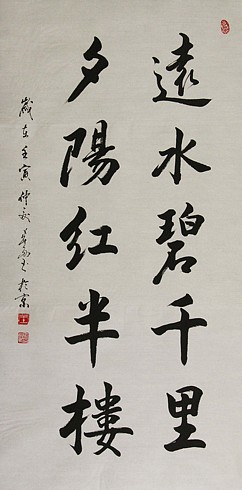 遠水碧千里
夕陽红半楼
歲在壬寅仲秋
书於京